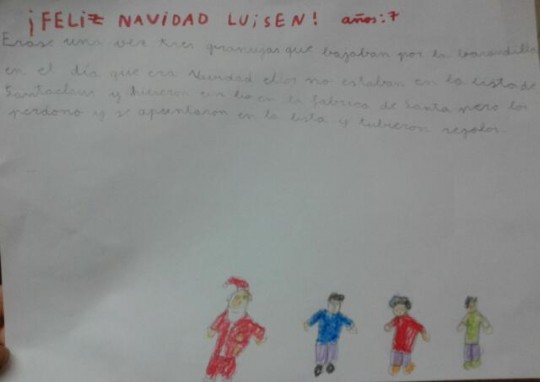 ¡FELIZ NAVIDAD LUISEN! años:7
Erase una vez tres granujas que bajaban por la barandilla
en el día que era Navidad ellos no estaban en la lista de
Santaclaus y hicieron un lio en la fabrica de santa pero los
perdono y se apuntaron en la lista y tubieron regalos.